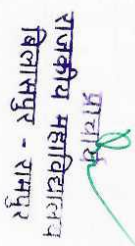 प्राचार्य
राजकीय महाविद्यालय
बिलासपुर - रामपुर